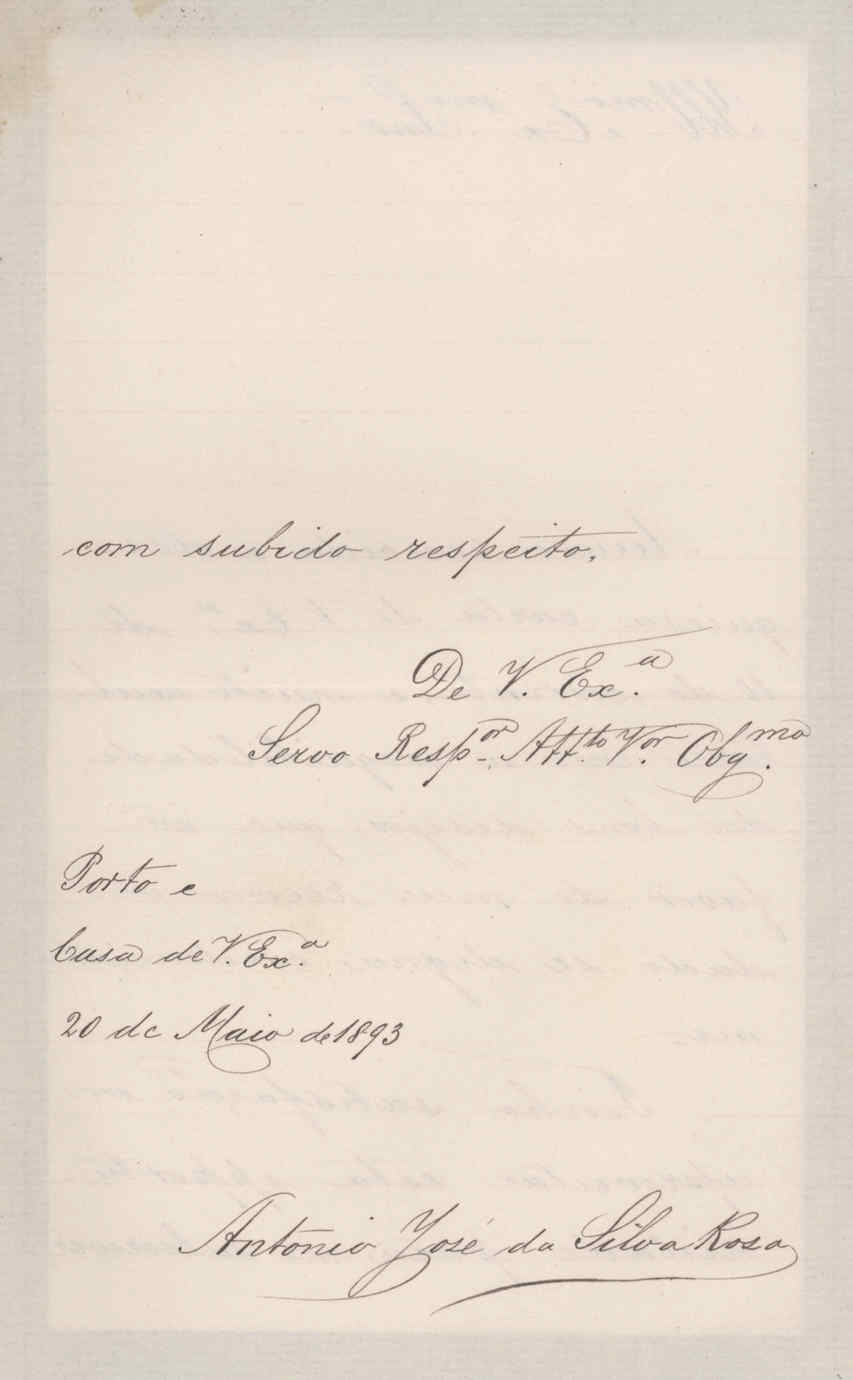 com subido respeito.
De V. Ex.ª
Servo Resp.or Att.to V.or Obg.mo
Porto e
Casa de V. Ex.ª
20 de Maio de 1893
Antonio José da Silva Rosa